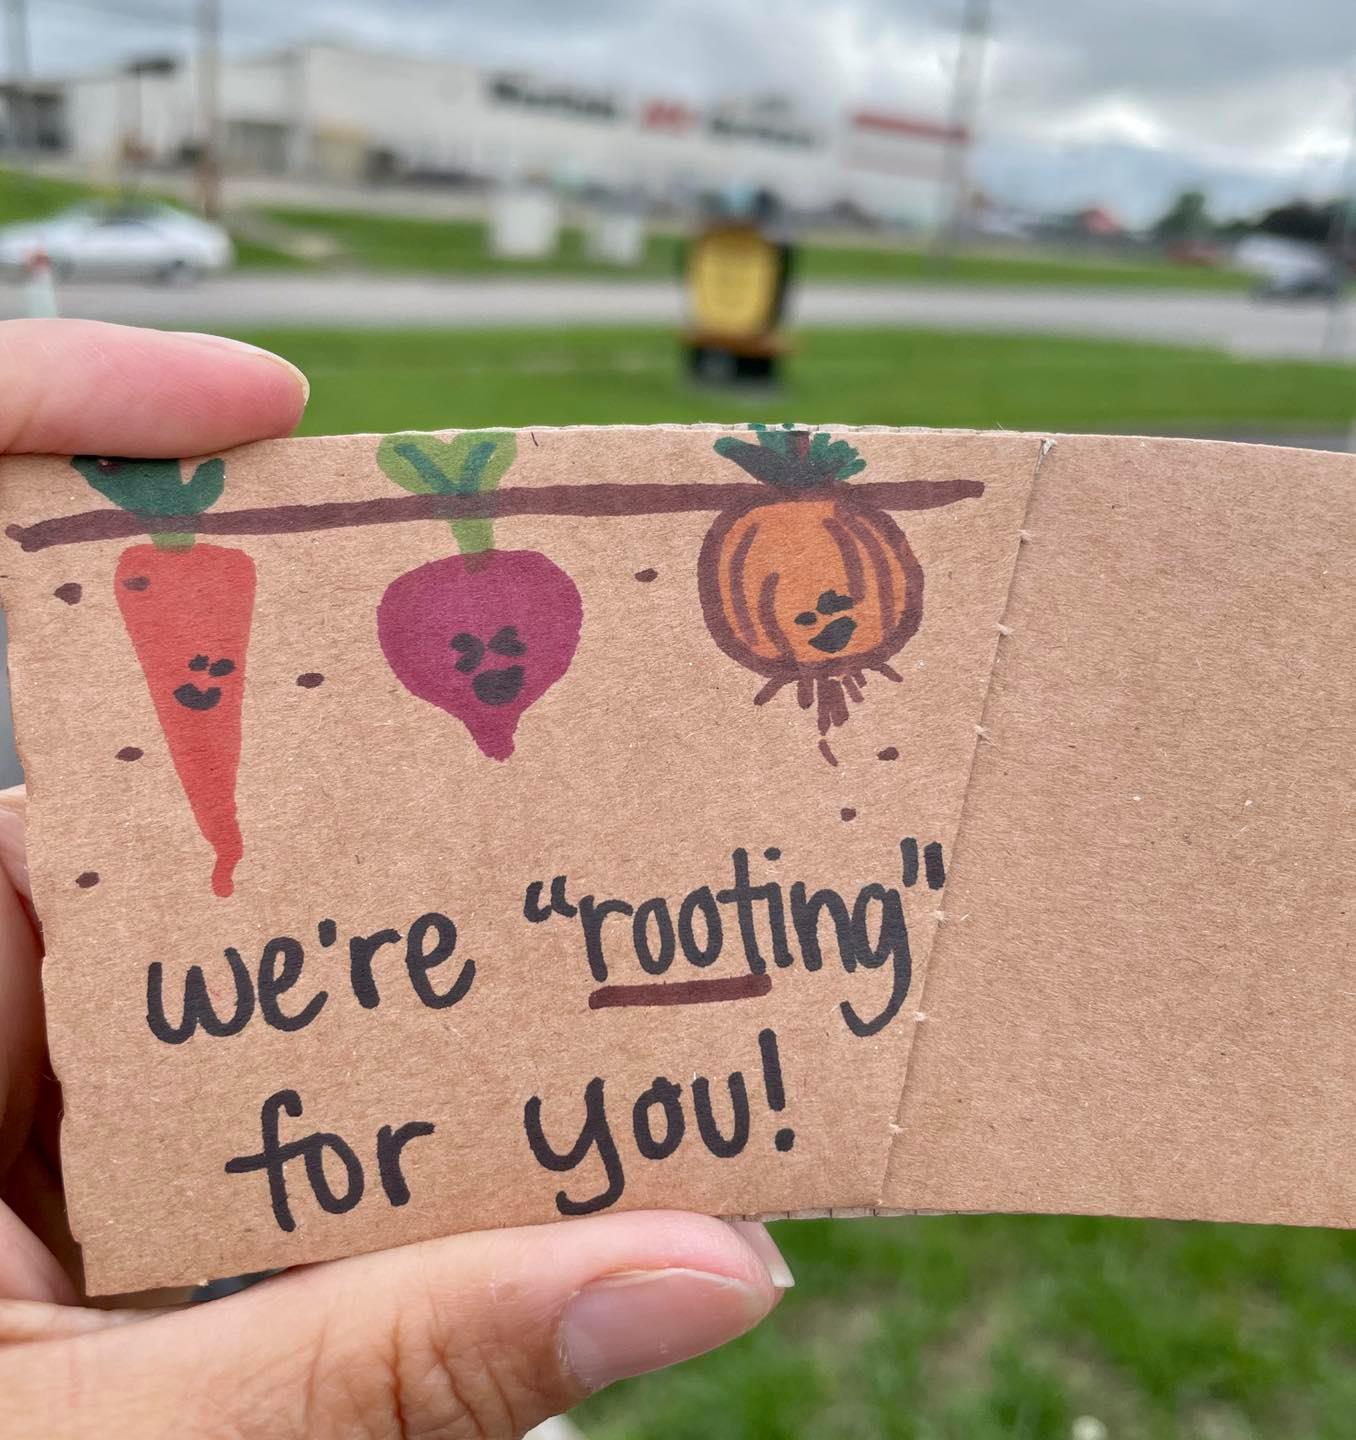 we're "rooting"
for you!